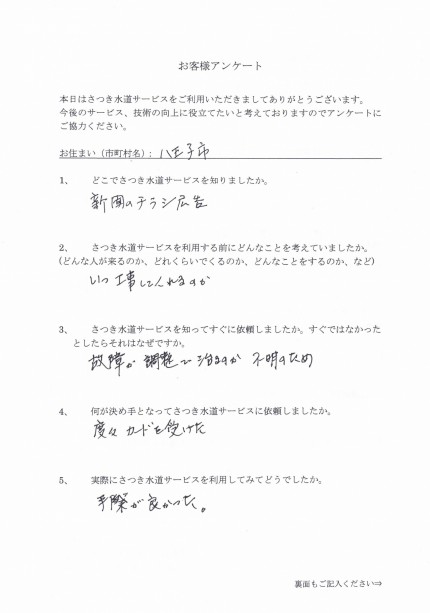 お客様アンケート
本日はさつき水道サービスをご利用いただきましてありがとうございます。
今後のサービス、技術の向上に役立てたいと考えておりますのでアンケートに
ご協力ください。
お住まい（市町村名）：八王子市
1、 どこでさつき水道サービスを知りましたか。
新聞のチラシ広告
2、 さつき水道サービスを利用する前にどんなことを考えていましたか。
（どんな人が来るのか、どれくらいでくるのか、どんなことをするのか、など）
いつ工事してくれるのか
3、 さつき水道サービスを知ってすぐに依頼しましたか。すぐではなかった
としたらそれはなぜですか。
故障が調整で治るのか 不明のため
4、 何が決め手となってさつき水道サービスに依頼しましたか。
度々カードを受けた
5、 実際にさつき水道サービスを利用してみてどうでしたか。
手際が良かった。
裏面もご記入ください⇒